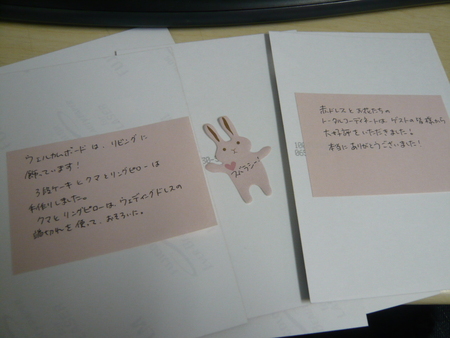 ウェルカムボードは、リビングに
飾っています!
3段ケーキとクマとリングピローは
手作りしました。
クマとリングピローはウェディングドレスの
端切れを使って、おそろいに。
赤ドレスとお花たちの
トータルコーディネートは、ゲストの皆様から
大好評をいただきました!
本当にありがとうございました!